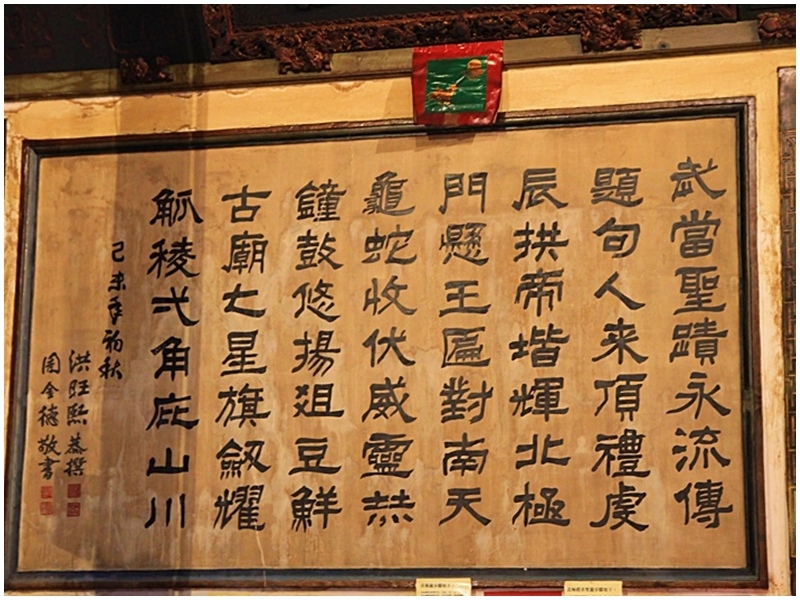 武當聖蹟永流傳
題句人来頂禮虔
辰拱帝堦輝北極
門懸王匾對南天
龜蛇收伏威靈赫
鐘鼓悠揚爼豆鮮
古廟七星旗劔耀
觚稜弍角庇山川
己未年初秋
洪旺熙恭撰
周全德敬書